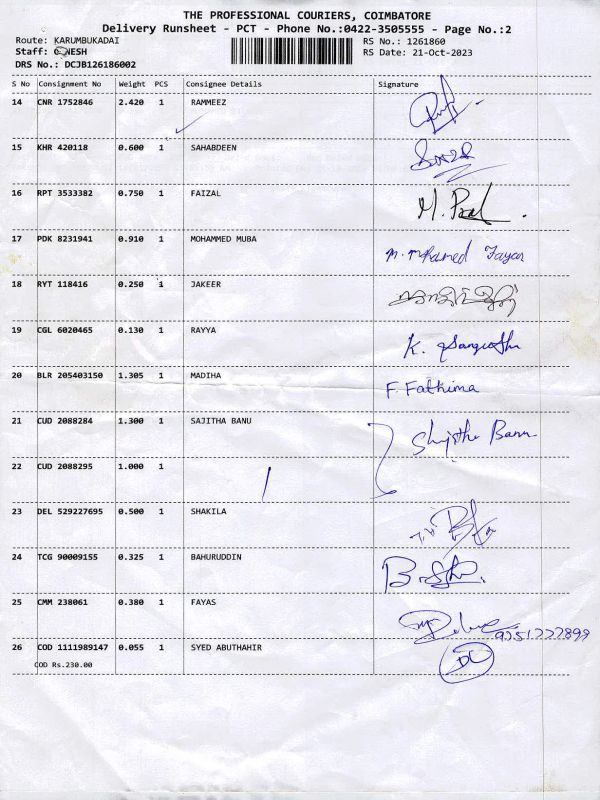 THE PROFESSIONAL COURIERS, COIMBATORE
Delivery Runsheet - PCT - Phone No.:0422-3505555 - Page No.:2
Route: KARUMBUKADAI RS No.: 1261860
Staff: RS Date: 21-Oct-2023
DRS No.: DCJB126186002
S No Consignment No Weight PCS Consignee Details Signature
14 CNR 1752846 2.420 1 RAMMEEZ
15 KHR 420118 0.600 1 SAHABDEEN
16 RPT 3533382 0.750 1 FAIZAL
17 PDK 8231941 0.910 1 MOHAMMED MUBA
18 RYT 118416 0.250 1 JAKEER
19 CGL 6020465 0.130 1 RAYYA K.
20 BLR 205403150 1.305 1 MADIHA F. Fathima
21 CUD 2088284 1.300 1 SAJITHA BANU Banu
22 CUD 2088295 1.000 1
23 DEL 529227695 0.500 1 SHAKILA
24 TCG 90009155 0.325 1 BAHURUDDIN
25 CMM 238061 0.380 1 FAYAS
26 COD 1111989147 0.055 1 SYED ABUTHAHIR DC
COD Rs.230.00